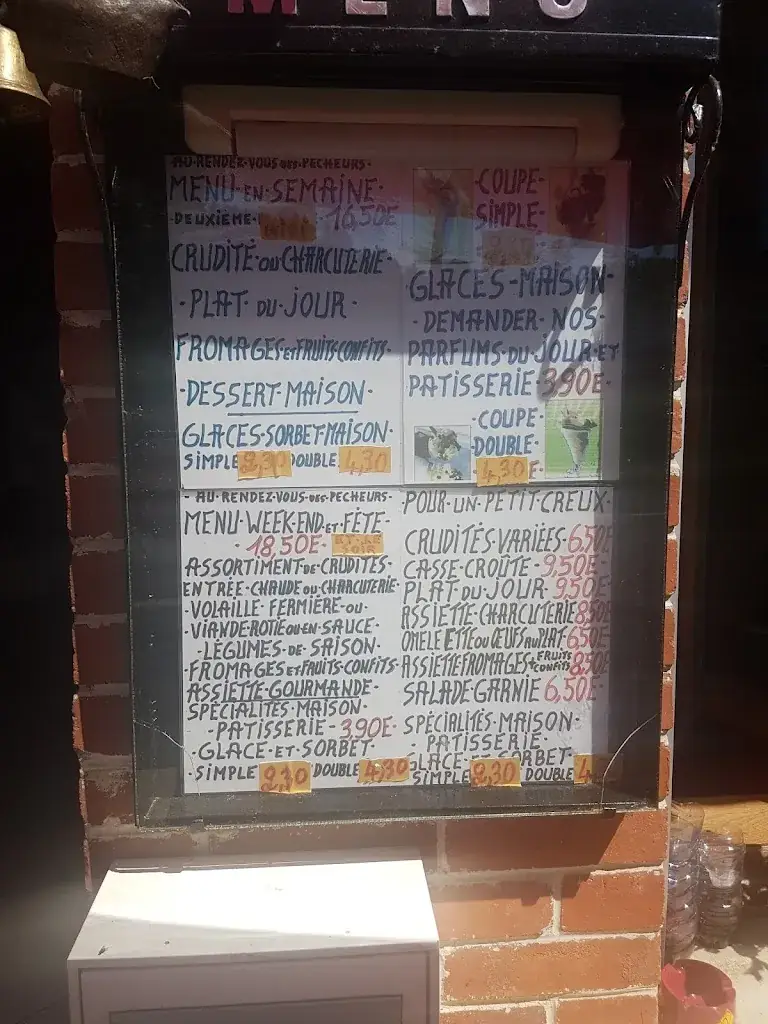 MENU
AU·RENDEZ·VOUS·DES·PECHEURS·
MENU·EN·SEMAINE·
DEUXIÈME· 16,50E
CRUDITÉ·OU·CHARCUTERIE·
·PLAT·DU·JOUR·
FROMAGES·ET·FRUITS·CONFITS·
·DESSERT·MAISON·
GLACES·SORBET·MAISON·
SIMPLE 2,30 DOUBLE 4,30
·COUPE·
SIMPLE·
GLACES·MAISON·
·DEMANDER·NOS·
PARFUMS·DU·JOUR·ET
PATISSERIE·3,90E·
·COUPE·
DOUBLE·
4,30
·AU·RENDEZ·VOUS·DES·PECHEURS·
MENU·WEEK·END·ET·FÊTE·
·18,50E· ET LE SOIR
ASSORTIMENT·DE·CRUDITÉS·
ENTRÉE·CHAUDE·OU·CHARCUTERIE·
·VOLAILLE·FERMIÈRE·OU·
·VIANDE·ROTIE·OU·EN·SAUCE·
·LÉGUMES·DE·SAISON·
·FROMAGES·ET·FRUITS·CONFITS·
ASSIETTE·GOURMANDE·
SPÉCIALITÉS·MAISON·
·PATISSERIE·3,90E·
·GLACE·ET·SORBET·
·SIMPLE 2,30 DOUBLE 4,30
POUR·UN·PETIT·CREUX·
CRUDITÉS·VARIÉES·6,50E
CASSE·CROÛTE·9,50E·
PLAT·DU·JOUR·9,50E
ASSIETTE·CHARCUTERIE 8,50E
OMELETTE OU ŒUFS AU PLAT·6,50E
ASSIETTE FROMAGES+FRUITS CONFITS 8,50E
SALADE·GARNIE 6,50E·
SPÉCIALITÉS·MAISON·
·PATISSERIE·
GLACE·ET·SORBET·
SIMPLE 2,30 DOUBLE 4